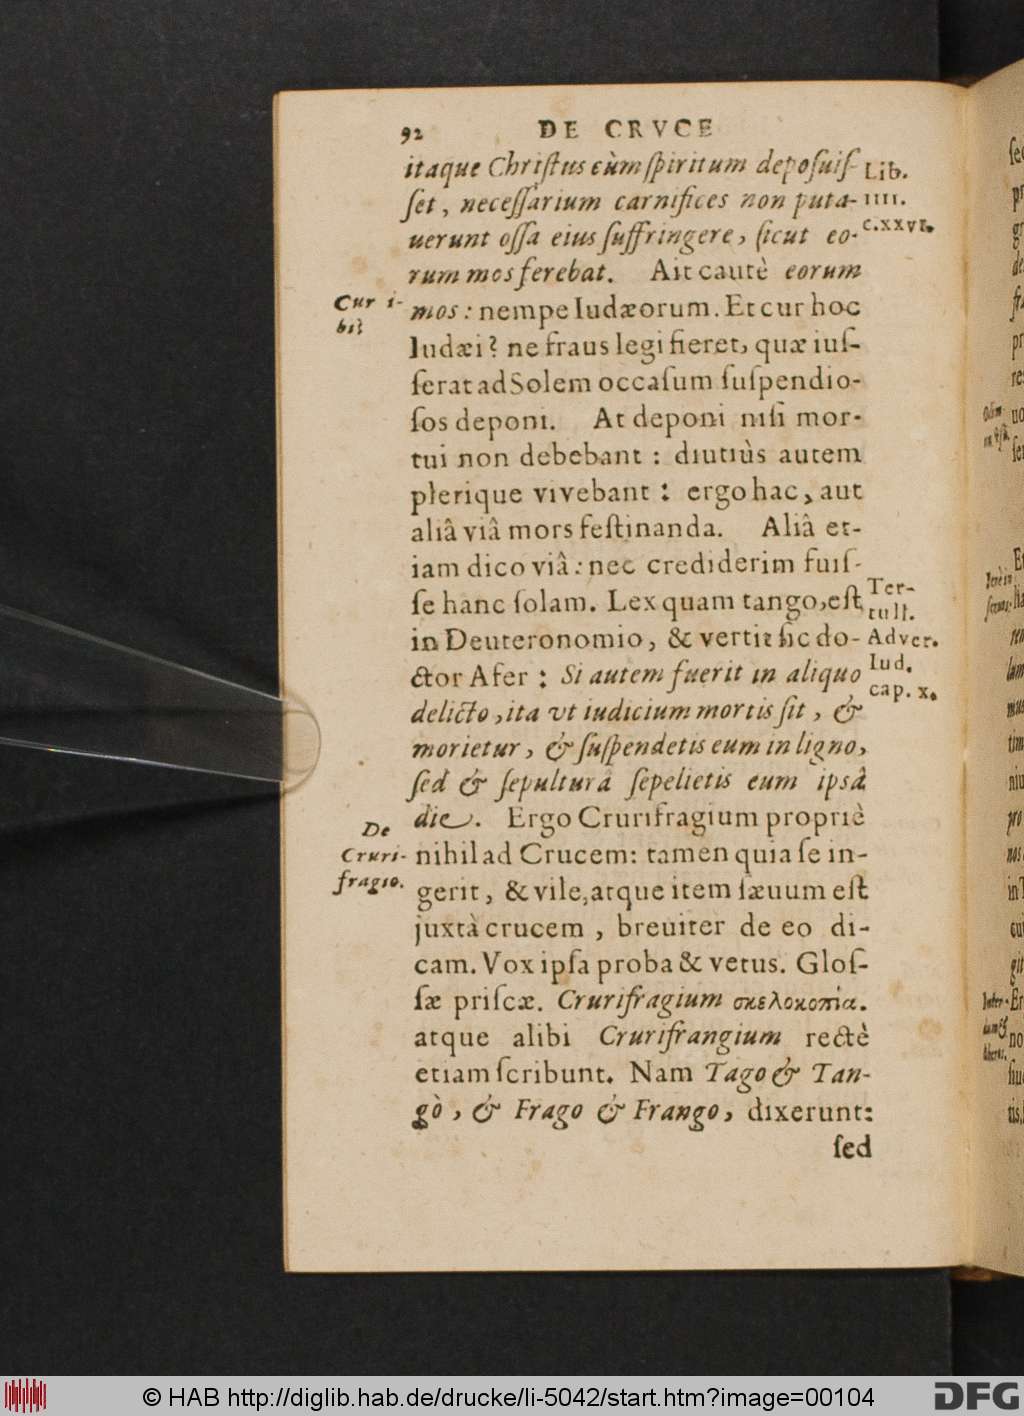 92 DE CRVCE
itaque Christus cùm spiritum deposuis-
set, necessarium carnifices non puta-
uerunt ossa eius suffringere, sicut eo-
rum mos ferebat. Ait cautè eorum
mos: nempe Iudæorum. Et cur hoc
Iudæi? ne fraus legi fieret, quæ iuſ-
ſerat ad Solem occaſum ſuſpendio-
ſos deponi. At deponi niſi mor-
tui non debebant: diutiùs autem
plerique vivebant: ergo hac, aut
aliâ viâ mors feſtinanda. Aliâ et-
iam dico viâ: nec crediderim fuiſ-
ſe hanc ſolam. Lex quam tango, eſt
in Deuteronomio, & vertit ſic do-
ctor Afer: Si autem fuerit in aliquo
delicto, ita vt iudicium mortis ſit, &
morietur, & ſuſpendetis eum in ligno,
ſed & ſepulturâ ſepelietis eum ipsâ
die. Ergo Crurifragium propriè
nihil ad Crucem: tamen quia ſe in-
gerit, & vile, atque item ſæuum eſt
juxtà crucem, breuiter de eo di-
cam. Vox ipſa proba & vetus. Gloſ-
ſæ priſcæ. Crurifragium σκελοκοπία.
atque alibi Crurifrangium rectè
etiam ſcribunt. Nam Tago & Tan-
gò, & Frago & Frango, dixerunt:
ſed
Lib.
IIII.
c.XXVI.
Cur i-
bi?
Ter-
tull.
Adver.
Iud.
cap. x.
De
Cruri-
fragio.
© HAB http://diglib.hab.de/drucke/li-5042/start.htm?image=00104
DFG